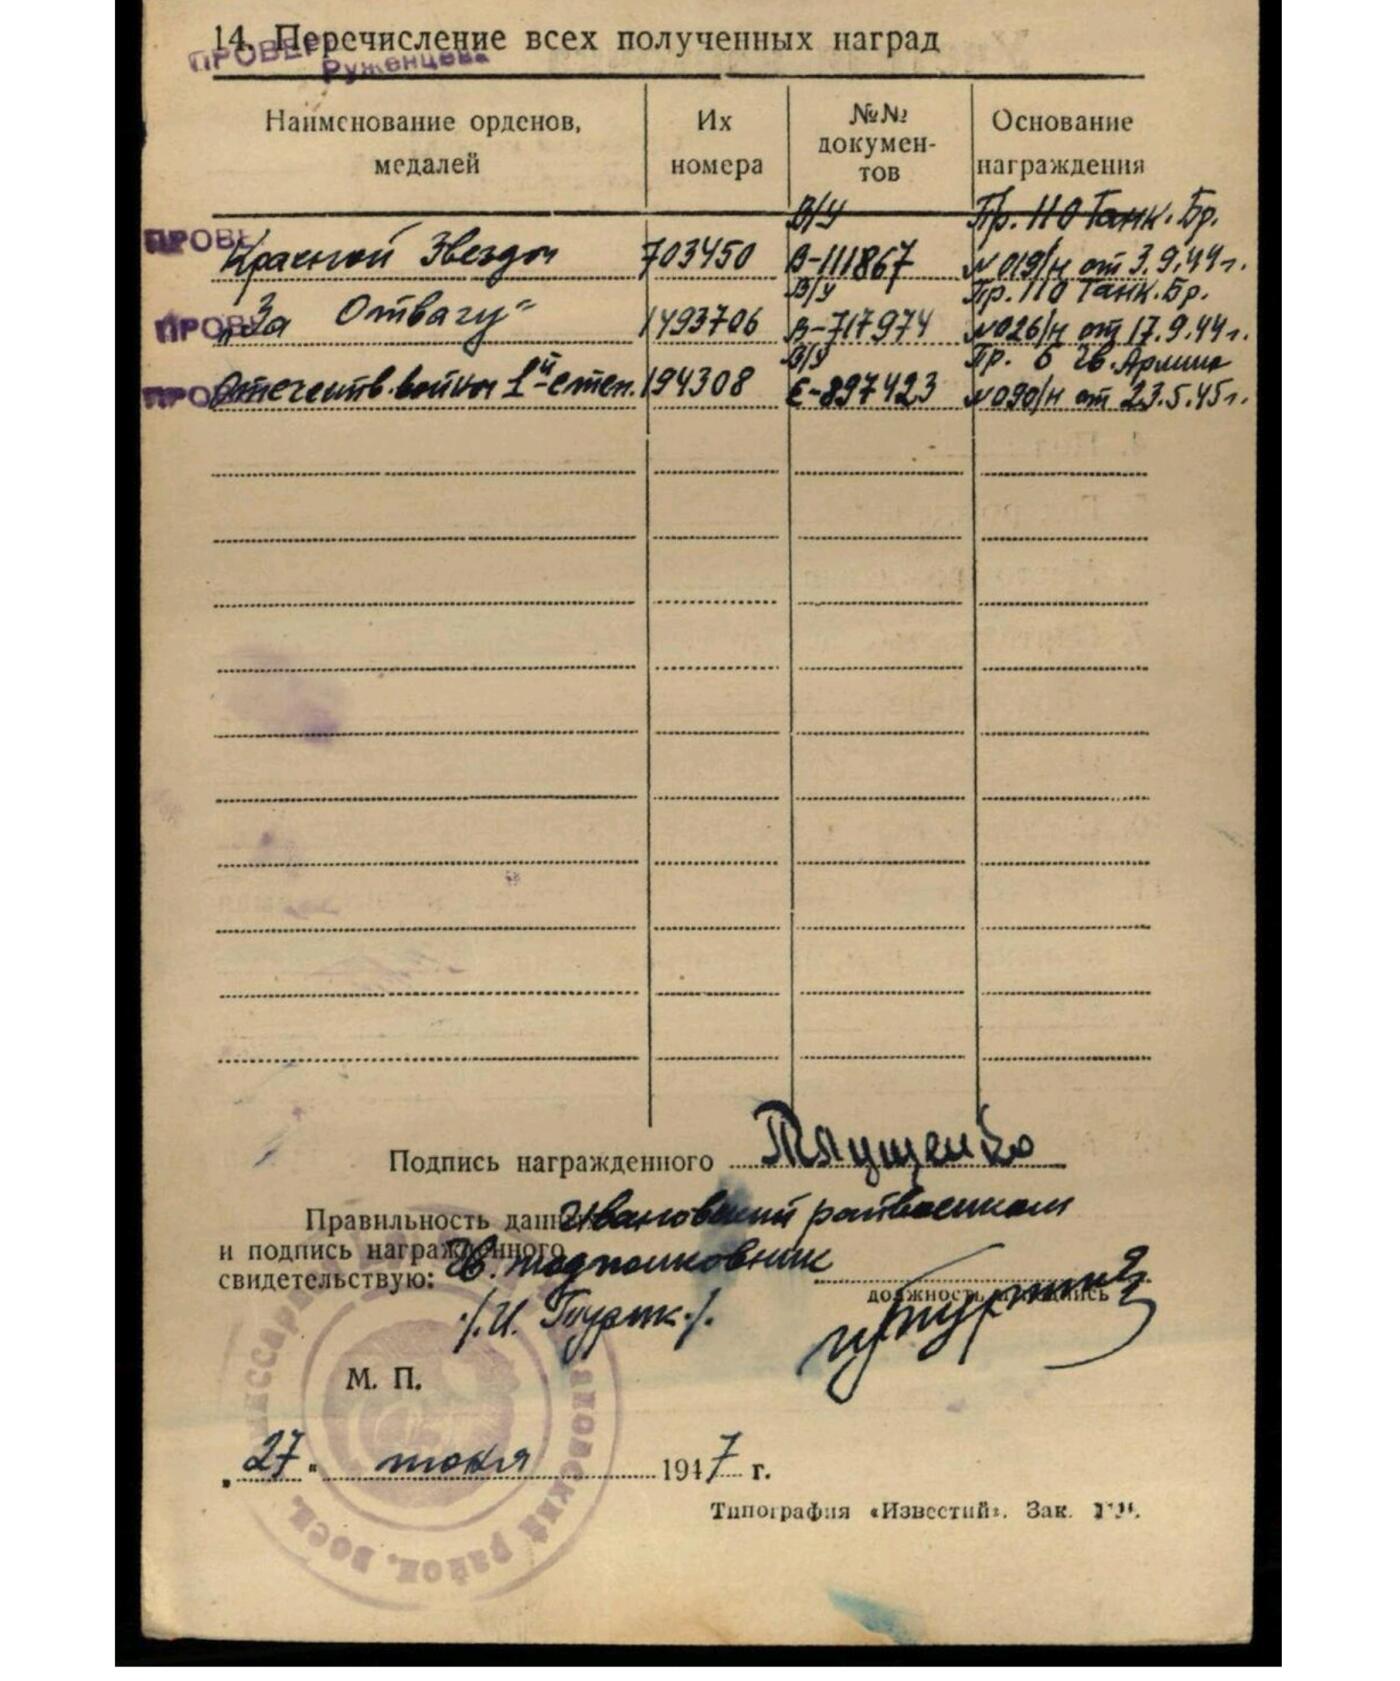 14. Перечисление всех полученных наград
ПРОВЕР
Руженцева
Наименование орденов, медалей
Их номера
№№ докумен-тов
Основание награждения
ПРОВЕ
Красной Звезды 703450 В/У В-111867 Пр. 110 Танк. Бр. №019/н от 3.9.44г.
ПРОВЕ
"За Отвагу" 1493706 В/У В-717974 Пр. 110 Танк. Бр. №026/н от 17.9.44г.
ПРО
Отечеств. войны 1й степ. 194308 В/У Е-897423 Пр. 6 Гв. Армии №090/н от 23.5.45г.
Подпись награжденного
Правильность данн Ивановский райвоенком
и подпись награжденного
свидетельствую: подполковник
должность подпись
М. П.
"27" июня 1947 г.
Типография «Известий». Зак.